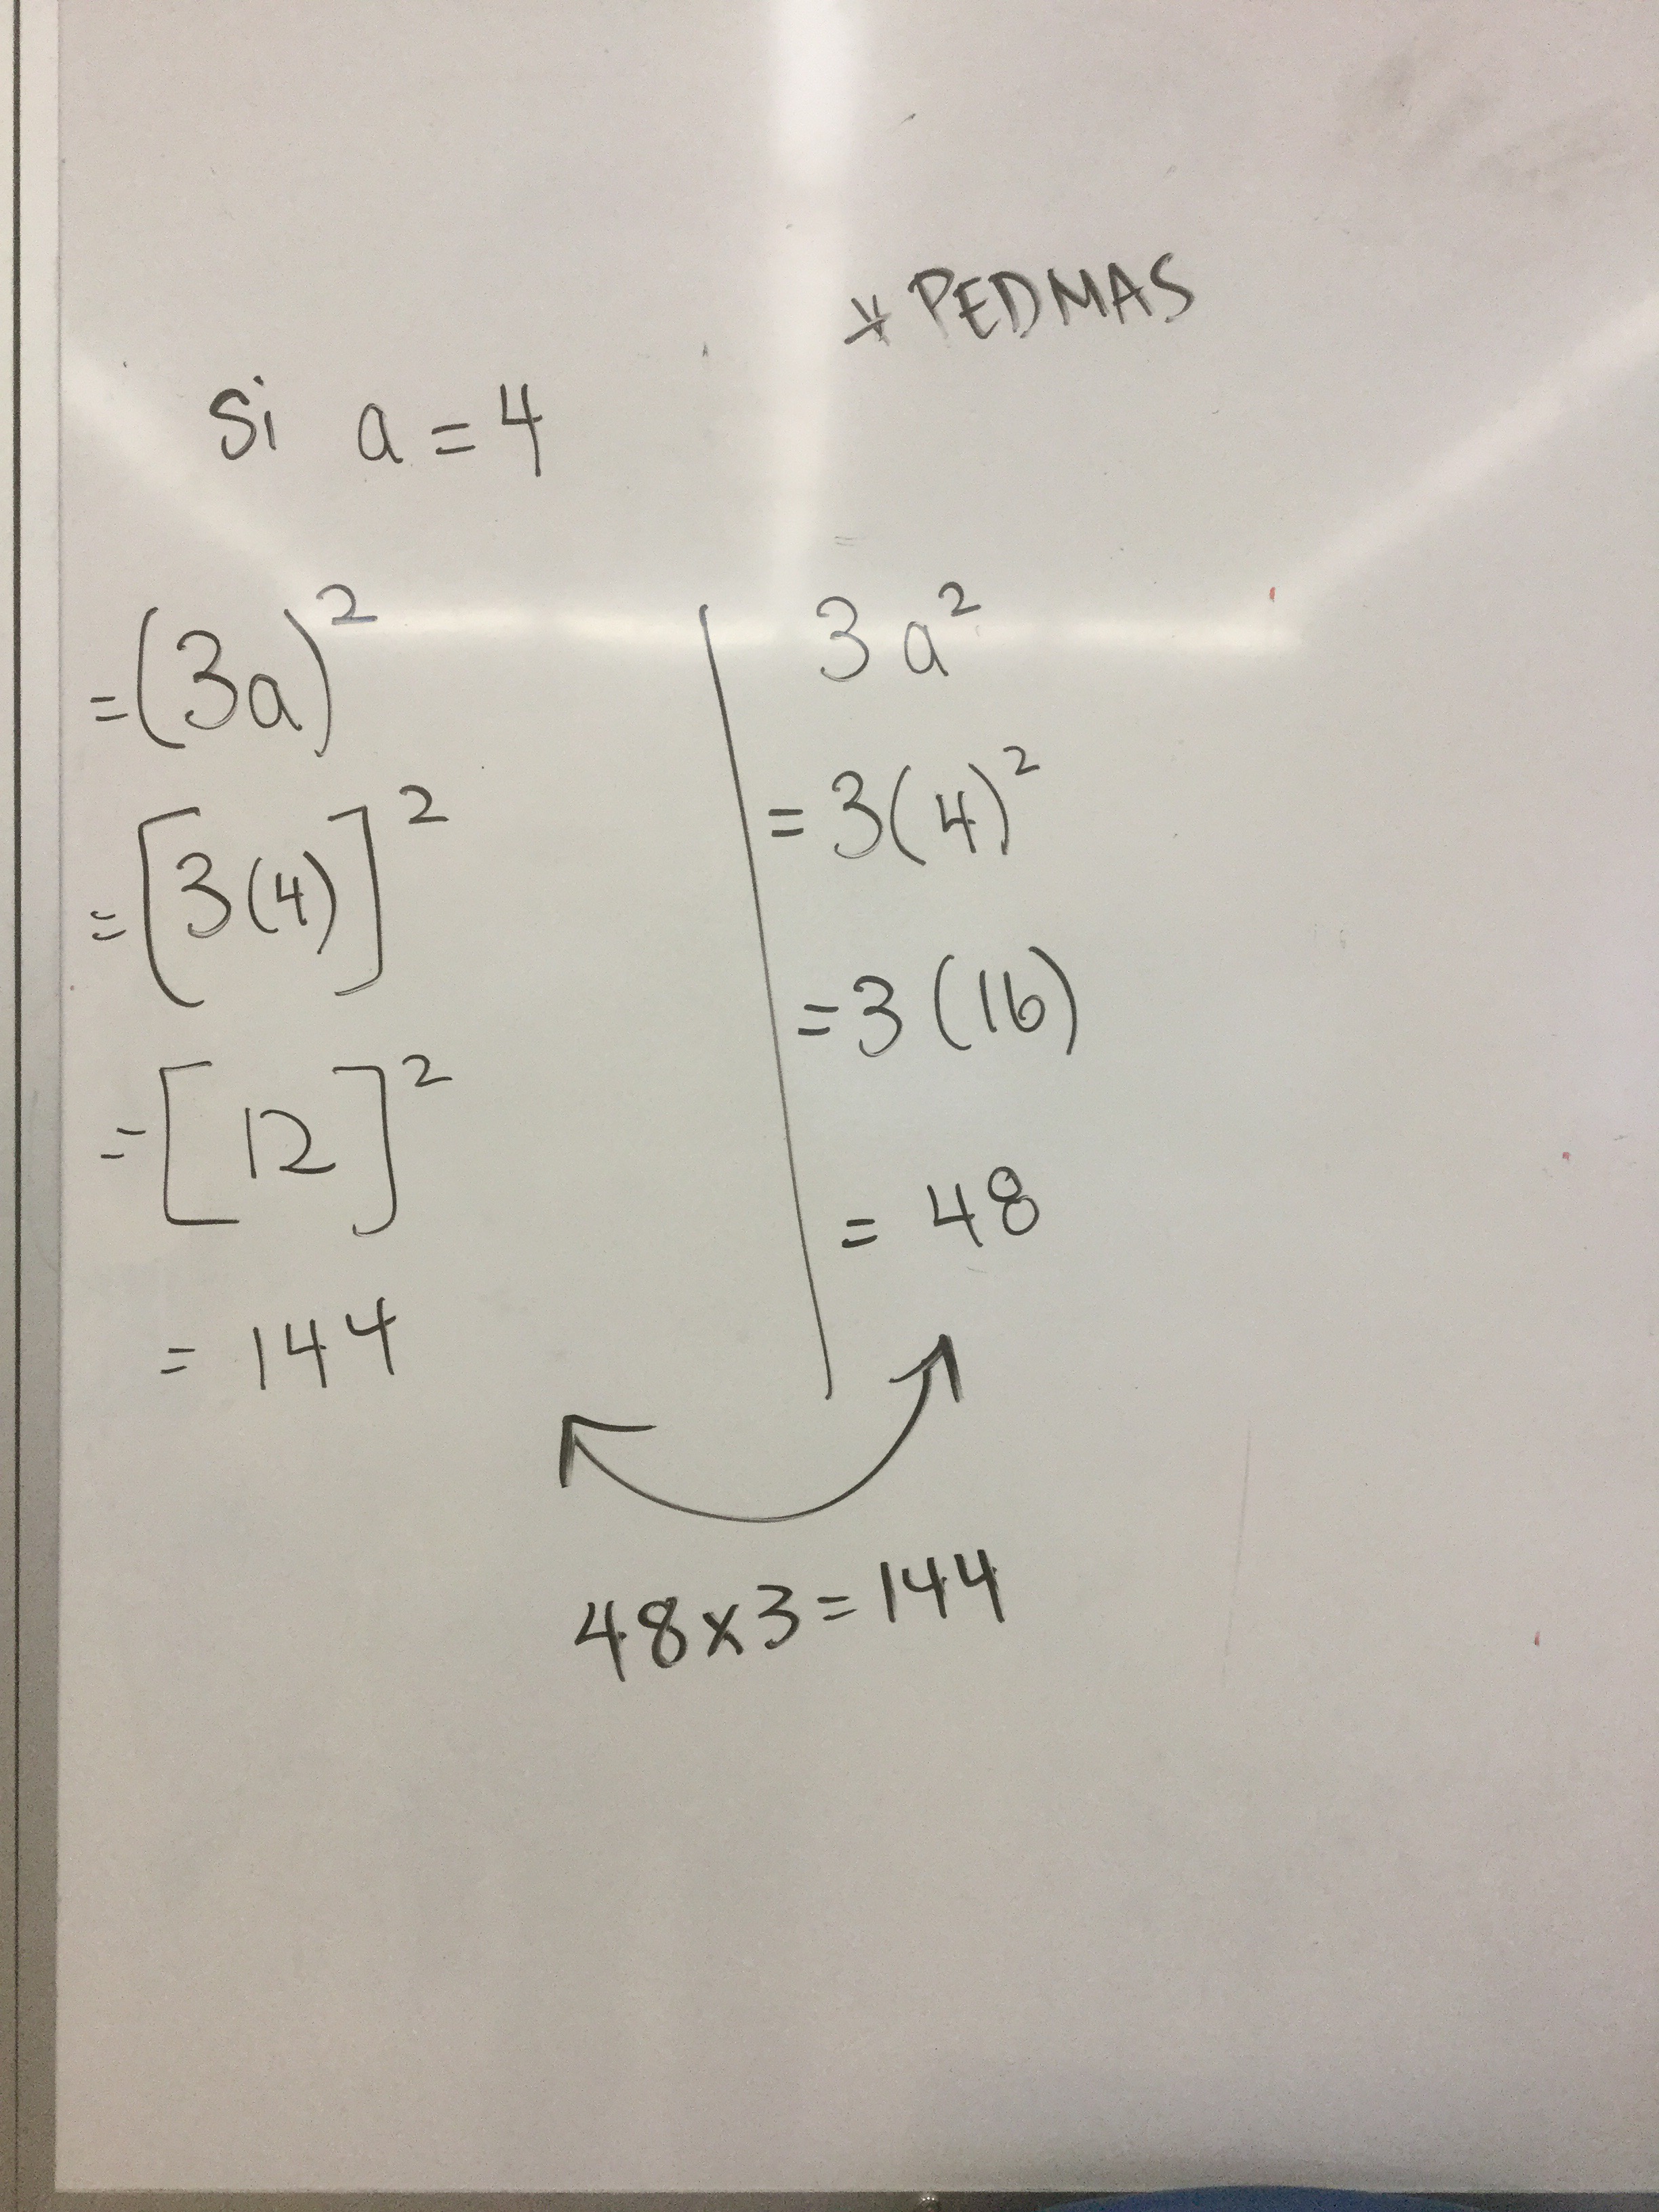 * PEDMAS
Si a = 4
= (3a)²
= [3(4)]²
= [12]²
= 144
3a²
= 3(4)²
= 3(16)
= 48
48 x 3 = 144